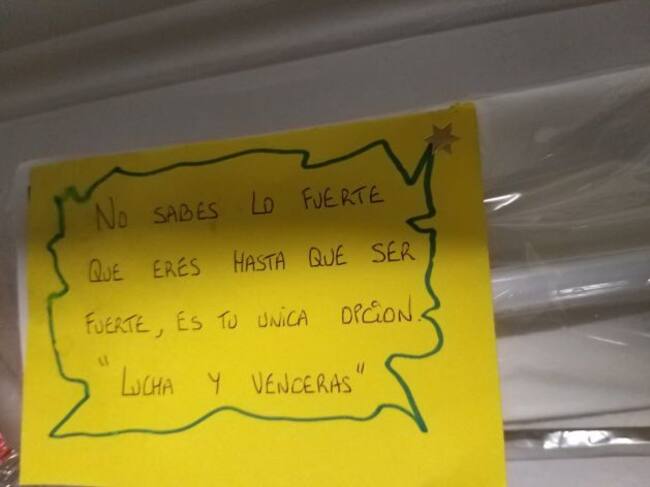 No SABES LO FUERTE
QUE ERES HASTA QUE SER
FUERTE, ES TU UNICA OPCION.
"LUCHA Y VENCERAS"